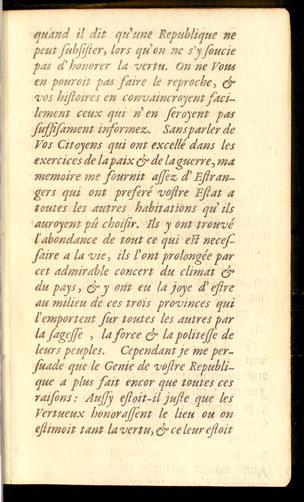 quand il dit qu'une Republique ne
peut ſubſiſter, lors qu'on ne s'y ſoucie
pas d'honorer la vertu. On ne Vous
en pouroit pas faire le reproche, &
vos hiſtoires en convaincroyent faci-
lement ceux qui n'en ſeroyent pas
ſuffiſament informez. Sans parler de
Vos Citoyens qui ont excellé dans les
exercices de la paix & de la guerre, ma
memoire me fournit aſſez d'Eſtran-
gers qui ont preferé voſtre Eſtat a
toutes les autres habitations qu'ils
auroyent pû choiſir. Ils y ont trouvé
l'abondance de tout ce qui eſt neceſ-
ſaire a la vie, ils l'ont prolongée par
cet admirable concert du climat &
du pays, & y ont eu la joye d'eſtre
au milieu de ces trois provinces qui
l'emportent ſur toutes les autres par
la ſageſſe , la force & la politeſſe de
leurs peuples. Cependant je me per-
ſuade que le Genie de voſtre Republi-
que a plus fait encor que toutes ces
raiſons: Auſſy eſtoit-il juſte que les
Vertueux honoraſſent le lieu ou on
eſtimoit tant la vertu, & ce leur eſtoit